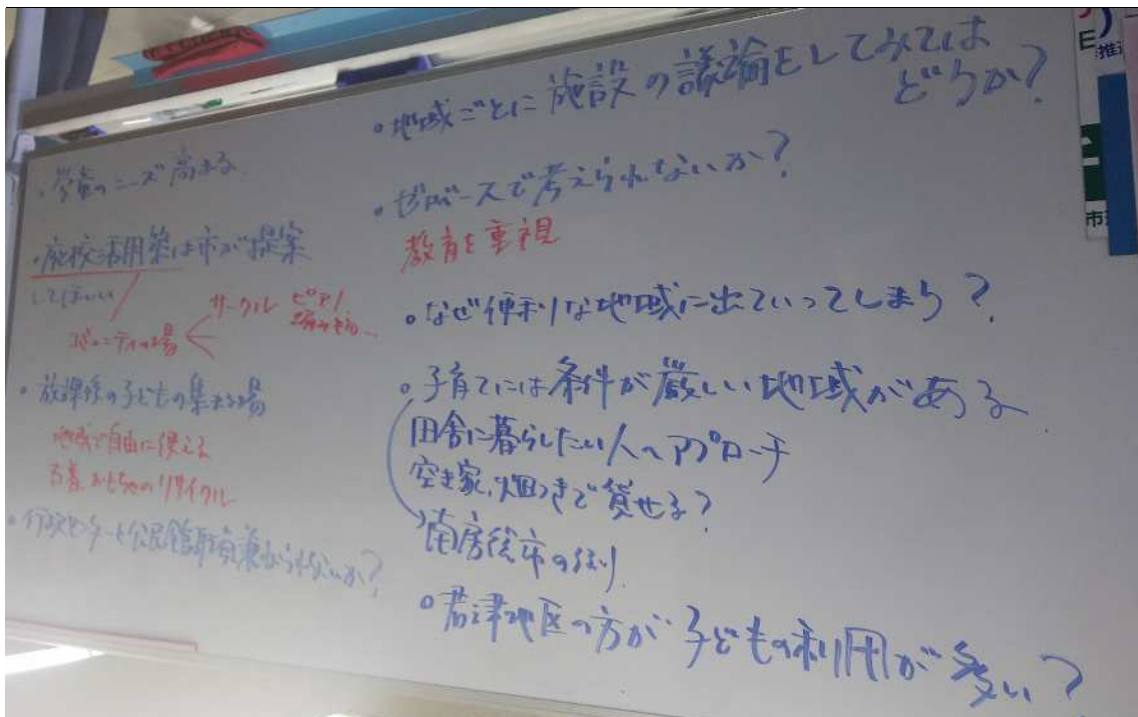 ・学童のニーズ高まる
・廃校活用策は市が提案
してほしい
コミュニティの場
サークル ピアノ
編みもの…
・放課後の子どもの集まる場
地域で自由に使える
古着、おもちゃのリサイクル
・行政センターと公民館
か?
・地域ごとに施設の議論をしてみては
どうか?
・ゼロベースで考えられないか?
教育を重視
・なぜ便利な地域に出ていってしまう?
・子育てには条件が厳しい地域がある
田舎に暮らしたい人へアプローチ
空き家、畑つきで貸せる?
南房総市の例
・君津地区の方が子どもの利用が多い?
E
推
市